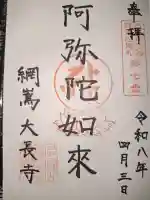 奉拝
令和八年
四月三日
阿弥陀如來
網嶌
大長寺